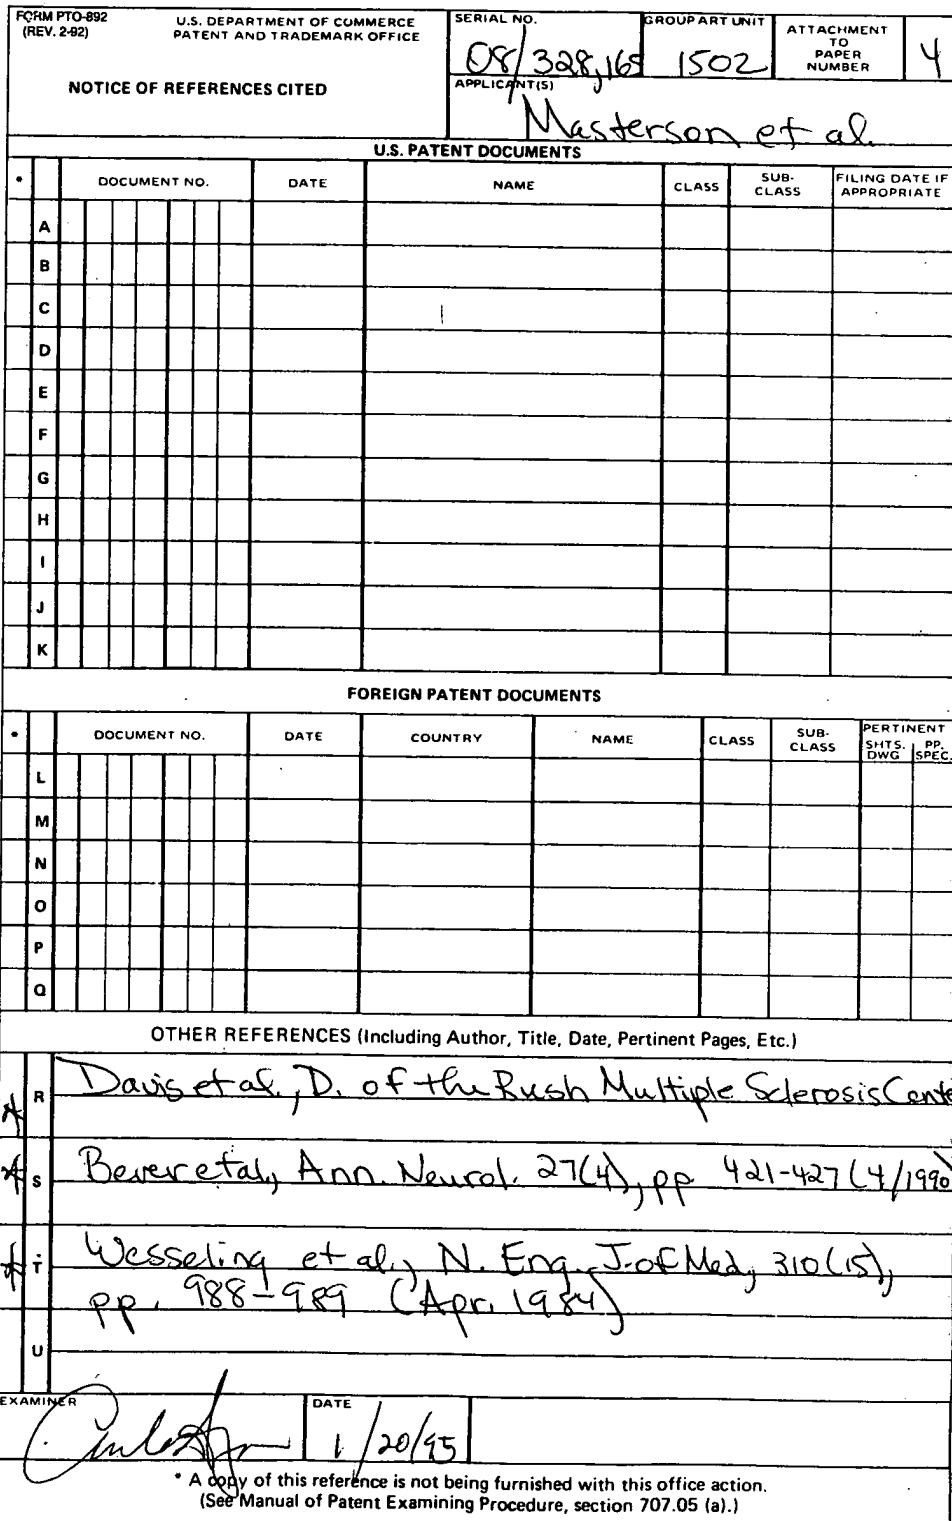 FORM PTO-892 U.S. DEPARTMENT OF COMMERCE
(REV. 2-92) PATENT AND TRADEMARK OFFICE
NOTICE OF REFERENCES CITED
SERIAL NO.
08/328,165
GROUP ART UNIT
1502
ATTACHMENT
TO
PAPER
NUMBER
4
APPLICANT(S)
Masterson et al.
U.S. PATENT DOCUMENTS
* DOCUMENT NO. DATE NAME CLASS SUB-CLASS FILING DATE IF APPROPRIATE
A
B
C
D
E
F
G
H
I
J
K
FOREIGN PATENT DOCUMENTS
* DOCUMENT NO. DATE COUNTRY NAME CLASS SUB-CLASS PERTINENT SHTS. DWG PP. SPEC.
L
M
N
O
P
Q
OTHER REFERENCES (Including Author, Title, Date, Pertinent Pages, Etc.)
* R Davis et al., D. of the Rush Multiple Sclerosis Cente
* S Bever et al., Ann. Neurol. 27(4), pp 421-427 (4/1990)
* T Wesseling et al., N. Eng. J. of Med, 310(15),
pp. 988-989 (Apr. 1984)
U
EXAMINER
DATE
1/20/95
* A copy of this reference is not being furnished with this office action.
(See Manual of Patent Examining Procedure, section 707.05 (a).)